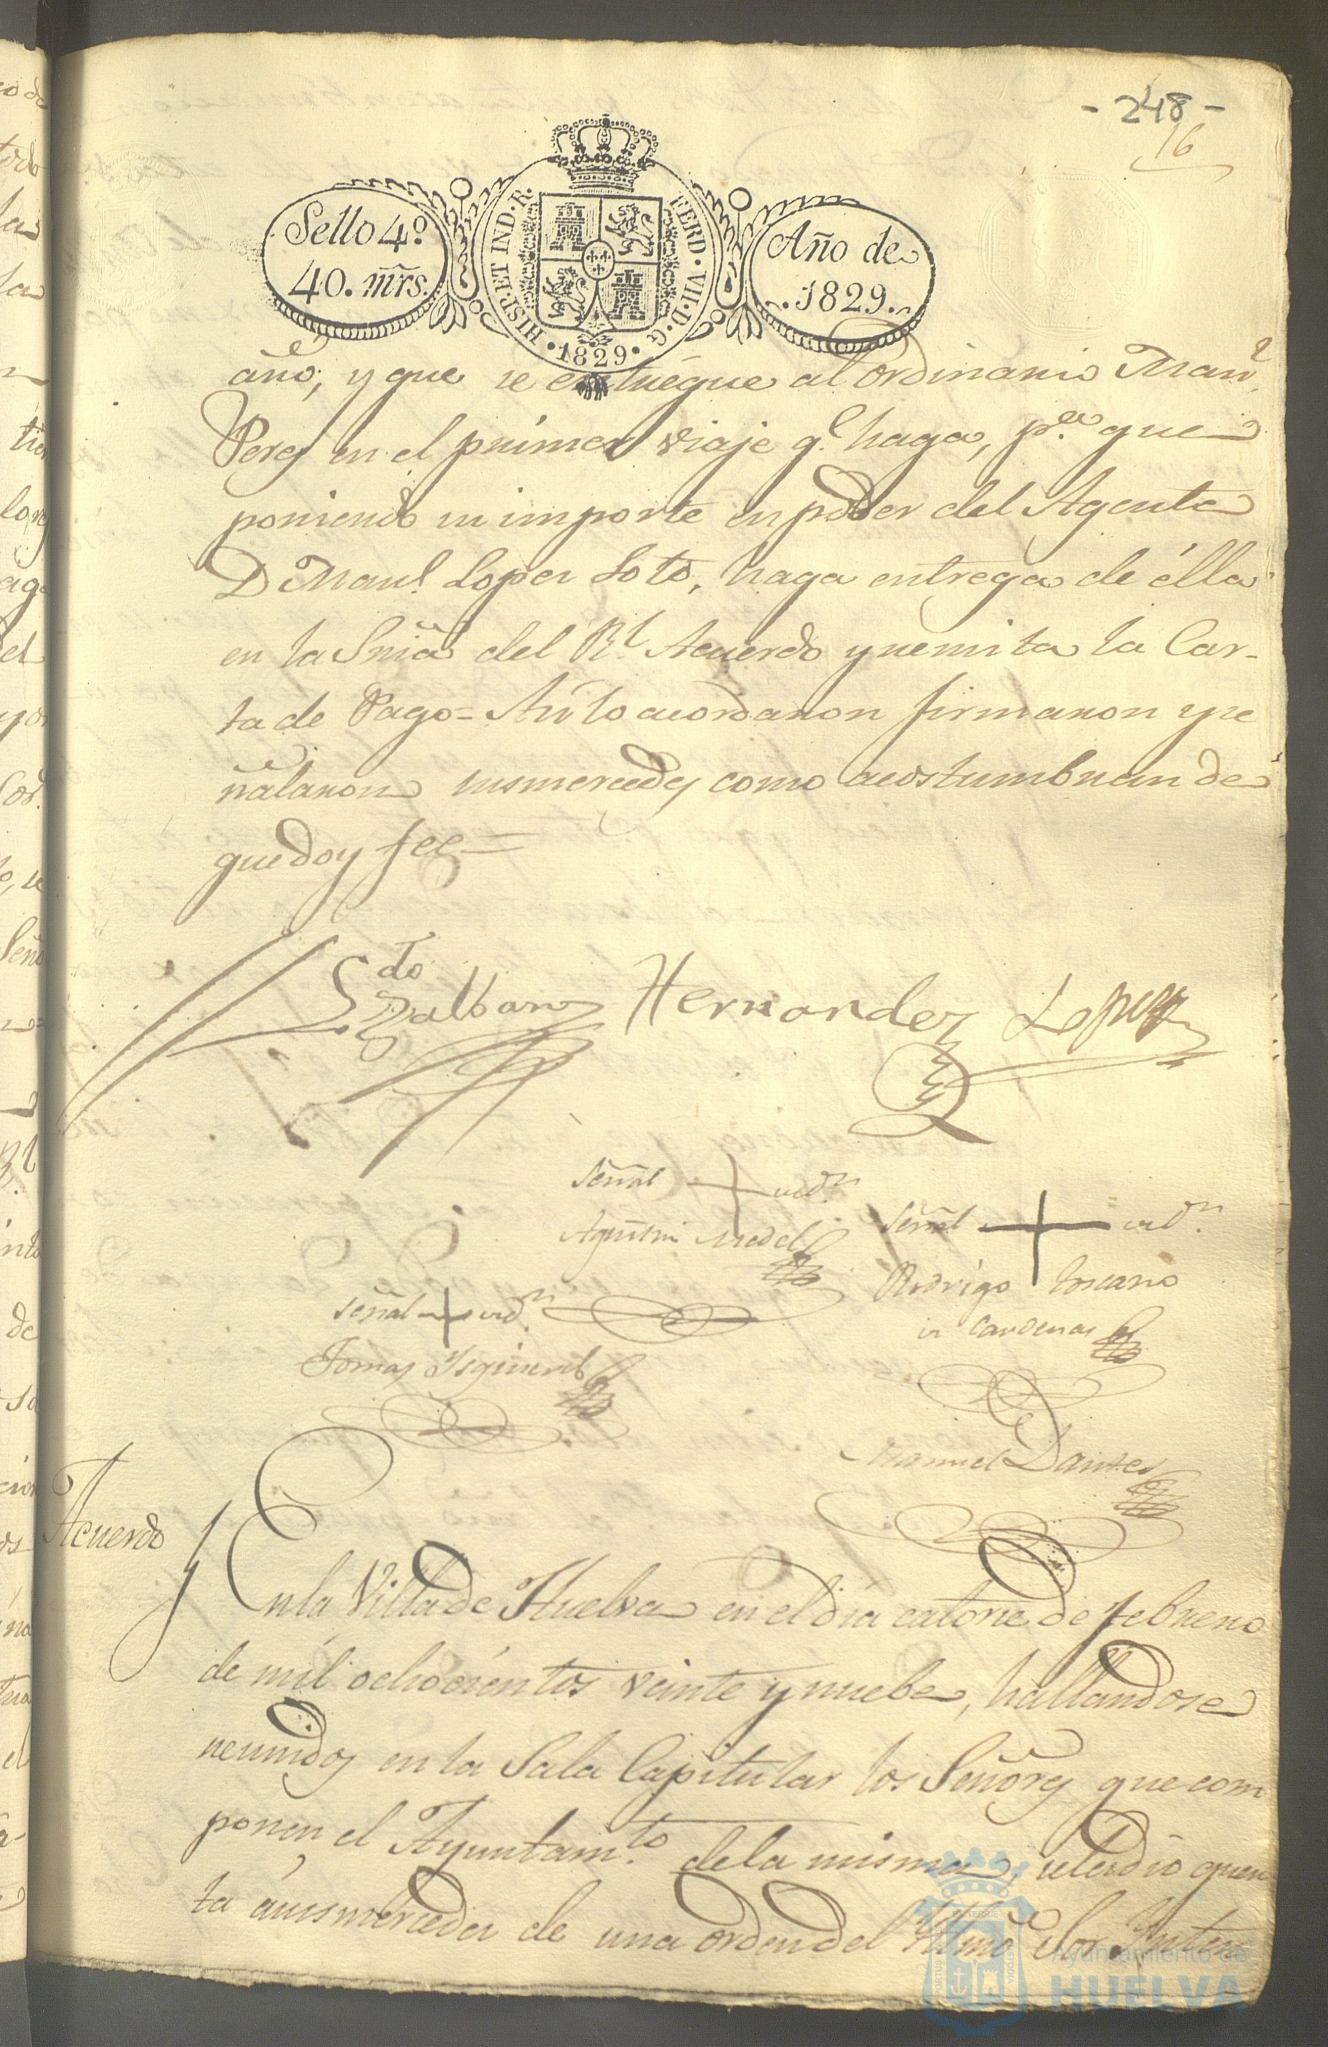 - 248 -
16
Sello 4º
40. mrs.
HISP. ET IND. R.
FERD. VII. D. G.
· 1829 ·
Año de
1829.
año; y que se entregue al ordinario Manl.
Perez en el primer viaje q.e haga, p.ra que
poniendo su importe en poder del Agente
D Manl. Lopez Soto, haga entrega de élla
en la Sriã del Rl. Acuerdo y remita la Car-
ta de Pago = Asi lo acordaron firmaron y se
ñalaron susmercedes como acostumbran de
que doy fee =
Hernandez Lopez
Señal + del Sr.
Agustin Medel
Señal + del Sr.
Rodrigo Toscano
Cardenas
Señal + del Sr.
Tomas Ysquierdo
Manuel
Acuerdo
En la Villa de Huelva en el dia catorce de febrero
de mil ochocientos veinte y nuebe, hallandose
reunidos en la Sala Capitular los Señores que com
ponen el Ayuntam.to de la misma, se les dio quen
ta á susmercedes de una orden del Yltmõ Sor. Inten
Ayuntamiento de
HUELVA